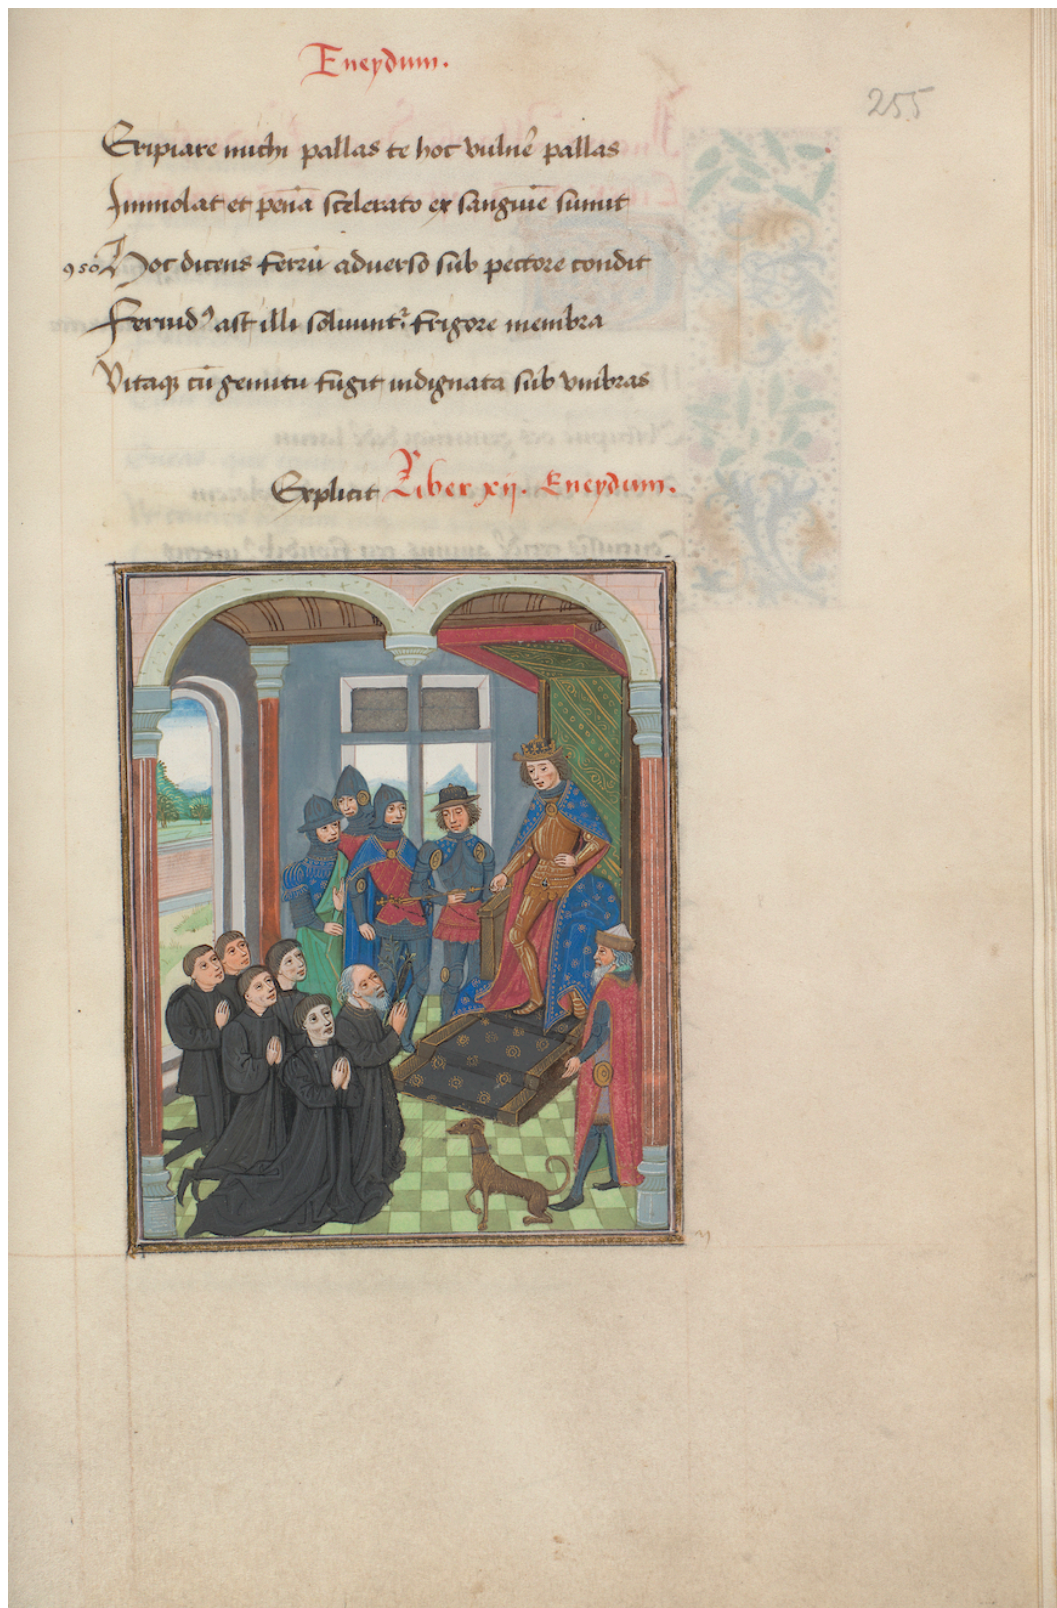 Eneydum.
255
Eripiare michi pallas te hoc vulnē pallas
Immolat et penā scelerato ex sanguīe sumit
950 Hoc dicens ferrū aduerso sub pectore condit
Feruidꝰ ast illi soluuntᷣ frigore membra
Vitaqꝫ cū gemitu fugit indignata sub vmbras
Explicit Liber xij. Eneydum.